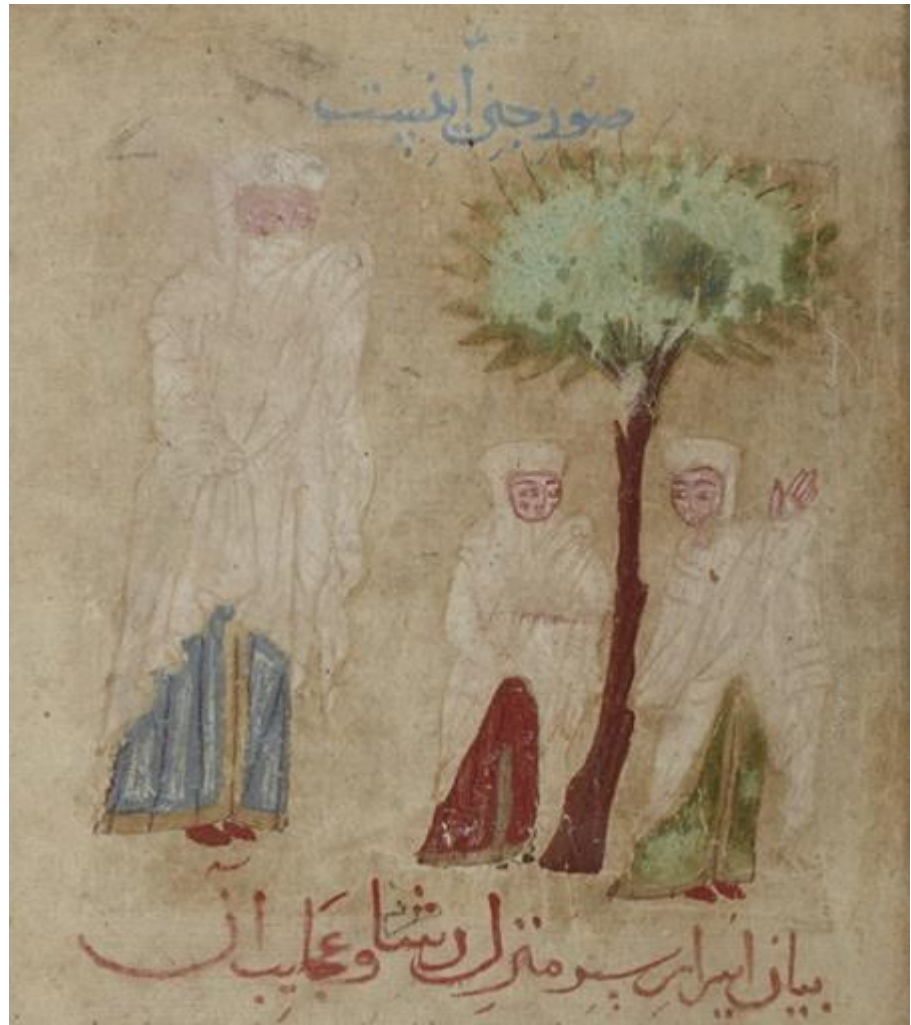 صور جنی اینست
بیان اسرار منزل رشا و عجایب آن